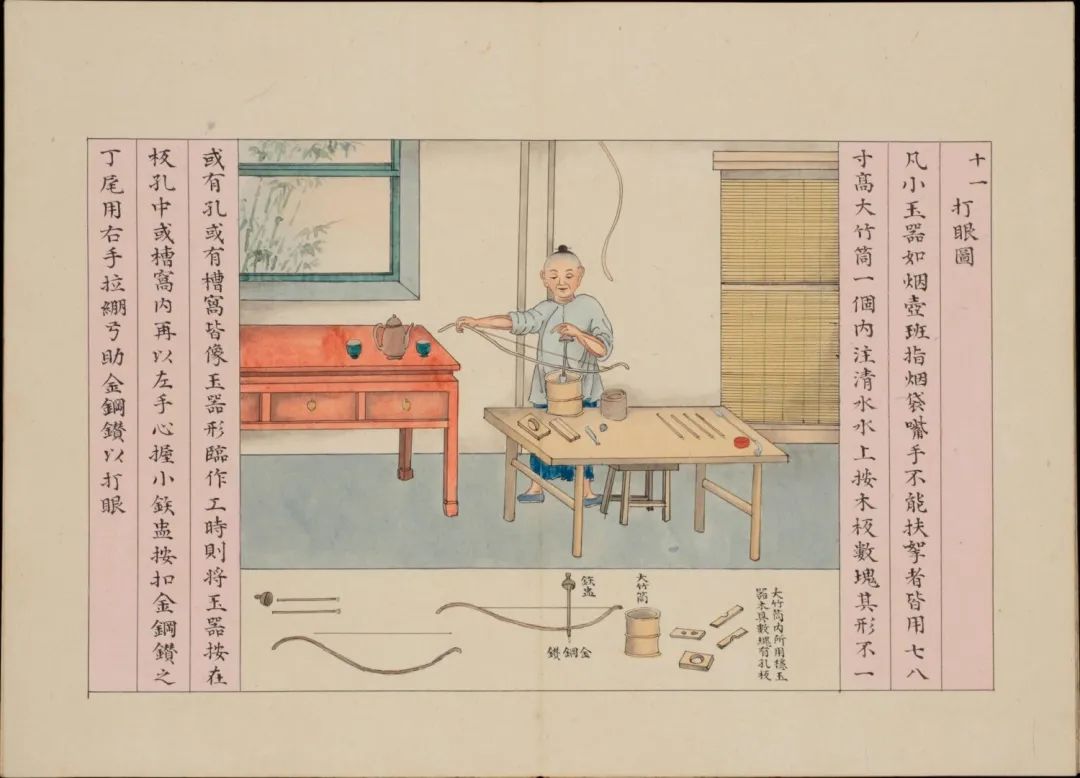 十一 打眼圖
凡小玉器如烟壺班指烟袋嘴手不能扶拏者皆用七八
寸高大竹筒一個内注清水水上按木板數塊其形不一
或有孔或有槽窩皆像玉器形臨作工時則將玉器按在
板孔中或槽窩内再以左手心握小鉄盅按扣金鋼鑽之
丁尾用右手拉綳弓助金鋼鑽以打眼
大竹筒内所用穏玉
器木具數塊有孔板
大竹筒
鉄盅
金鋼鑽